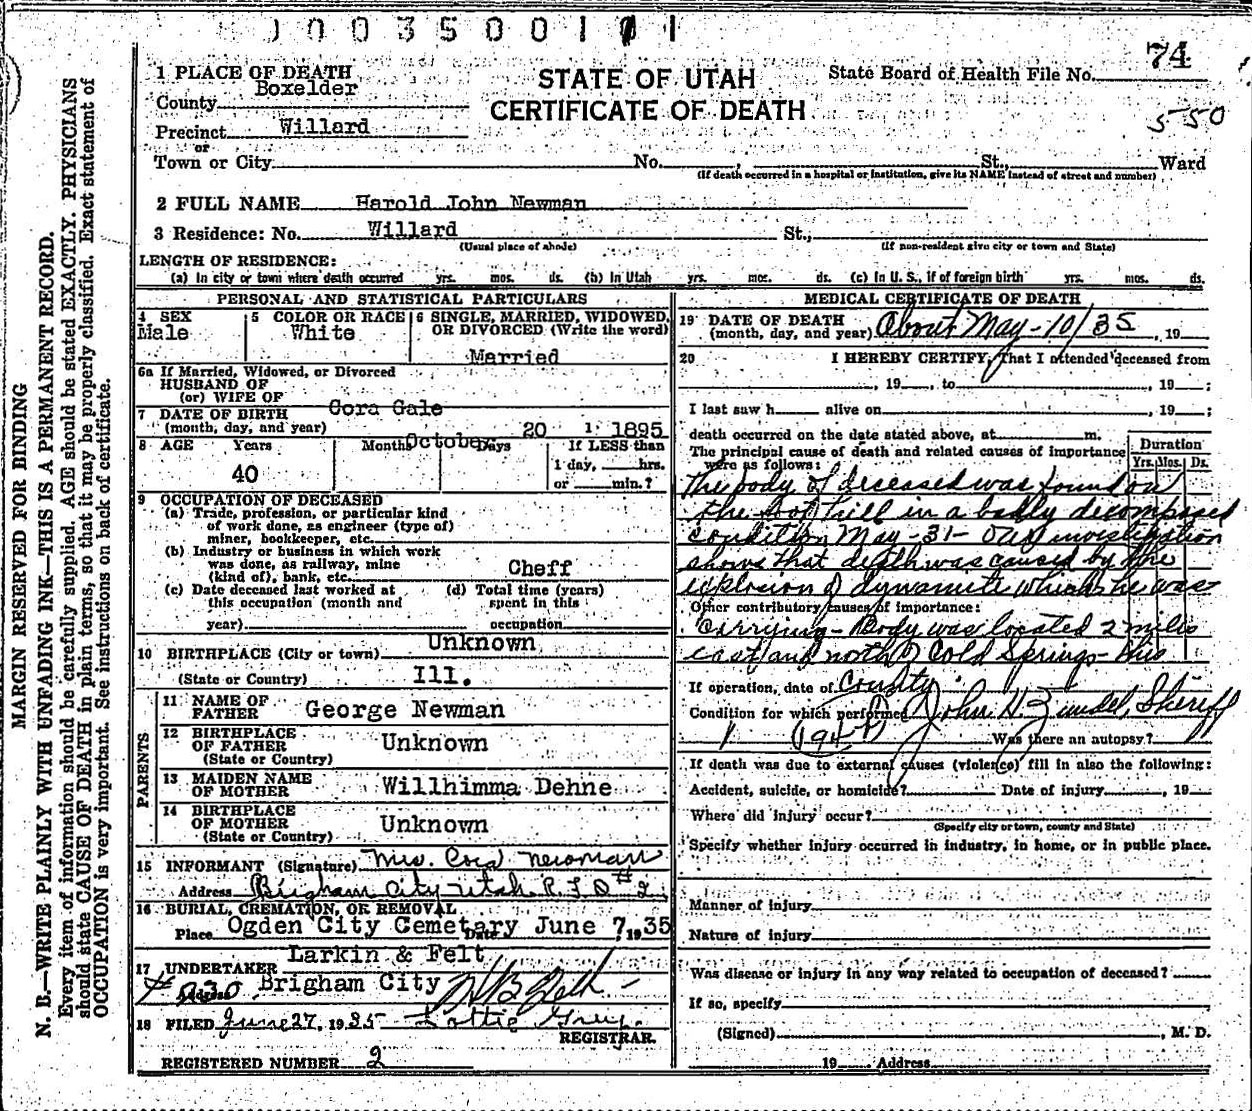 0 0 3 5 0 0 1 1 1
74
550
1 PLACE OF DEATH
County Boxelder
Precinct Willard
or
Town or City
STATE OF UTAH
CERTIFICATE OF DEATH
State Board of Health File No.
No. , St., Ward
(If death occurred in a hospital or institution, give its NAME instead of street and number)
2 FULL NAME Harold John Newman
3 Residence: No. Willard St.,
(Usual place of abode) (If non-resident give city or town and State)
LENGTH OF RESIDENCE:
(a) In city or town where death occurred yrs. mos. ds. (b) In Utah yrs. mos. ds. (c) In U. S., if of foreign birth yrs. mos. ds.
PERSONAL AND STATISTICAL PARTICULARS
4 SEX Male
5 COLOR OR RACE White
6 SINGLE, MARRIED, WIDOWED, OR DIVORCED (Write the word)
Married
6a If Married, Widowed, or Divorced
HUSBAND OF
(or) WIFE OF Cora Gale
7 DATE OF BIRTH
(month, day, and year) October 20 1895
8 AGE Years Months Days If LESS than
40 1 day, hrs.
or min.?
9 OCCUPATION OF DECEASED
(a) Trade, profession, or particular kind
of work done, as engineer (type of)
miner, bookkeeper, etc.
(b) Industry or business in which work
was done, as railway, mine
(kind of), bank, etc. Cheff
(c) Date deceased last worked at
this occupation (month and
year)
(d) Total time (years)
spent in this
occupation
10 BIRTHPLACE (City or town) Unknown
(State or Country) Ill.
PARENTS
11 NAME OF
FATHER George Newman
12 BIRTHPLACE
OF FATHER Unknown
(State or Country)
13 MAIDEN NAME
OF MOTHER Willhimma Dehne
14 BIRTHPLACE
OF MOTHER Unknown
(State or Country)
15 INFORMANT (Signature) Mrs. Cora Newman
Address Brigham City Utah R.F.D #2
16 BURIAL, CREMATION, OR REMOVAL
Place Ogden City Cemetary Date June 7, 1935
17 UNDERTAKER Larkin & Felt
Address Brigham City
18 FILED June 27, 1935
REGISTRAR.
REGISTERED NUMBER 2
MEDICAL CERTIFICATE OF DEATH
19 DATE OF DEATH
(month, day, and year) About May-10/35 , 19
20 I HEREBY CERTIFY, That I attended deceased from
, 19 , to , 19 ;
I last saw h alive on , 19 ;
death occurred on the date stated above, at m.
The principal cause of death and related causes of importance
were as follows:
Duration
Yrs. Mos. Ds.
The body of deceased was found on
the foot hill in a badly decomposed
condition May-31- investigation
shows that death was caused by the
explosion of dynamite which he was
Other contributory causes of importance:
Carrying- Body was located 2 miles
east and north of Cold Springs- this
If operation, date of County
Condition for which performed John H. Zundel, Sheriff
194
Was there an autopsy?
If death was due to external causes (violence) fill in also the following:
Accident, suicide, or homicide? Date of injury , 19
Where did injury occur?
(Specify city or town, county and State)
Specify whether injury occurred in industry, in home, or in public place.
Manner of injury
Nature of injury
Was disease or injury in any way related to occupation of deceased?
If so, specify
(Signed) , M. D.
19 Address
MARGIN RESERVED FOR BINDING
N. B.—WRITE PLAINLY WITH UNFADING INK—THIS IS A PERMANENT RECORD.
Every item of information should be carefully supplied. AGE should be stated EXACTLY. PHYSICIANS
should state CAUSE OF DEATH in plain terms, so that it may be properly classified. Exact statement of
OCCUPATION is very important. See instructions on back of certificate.